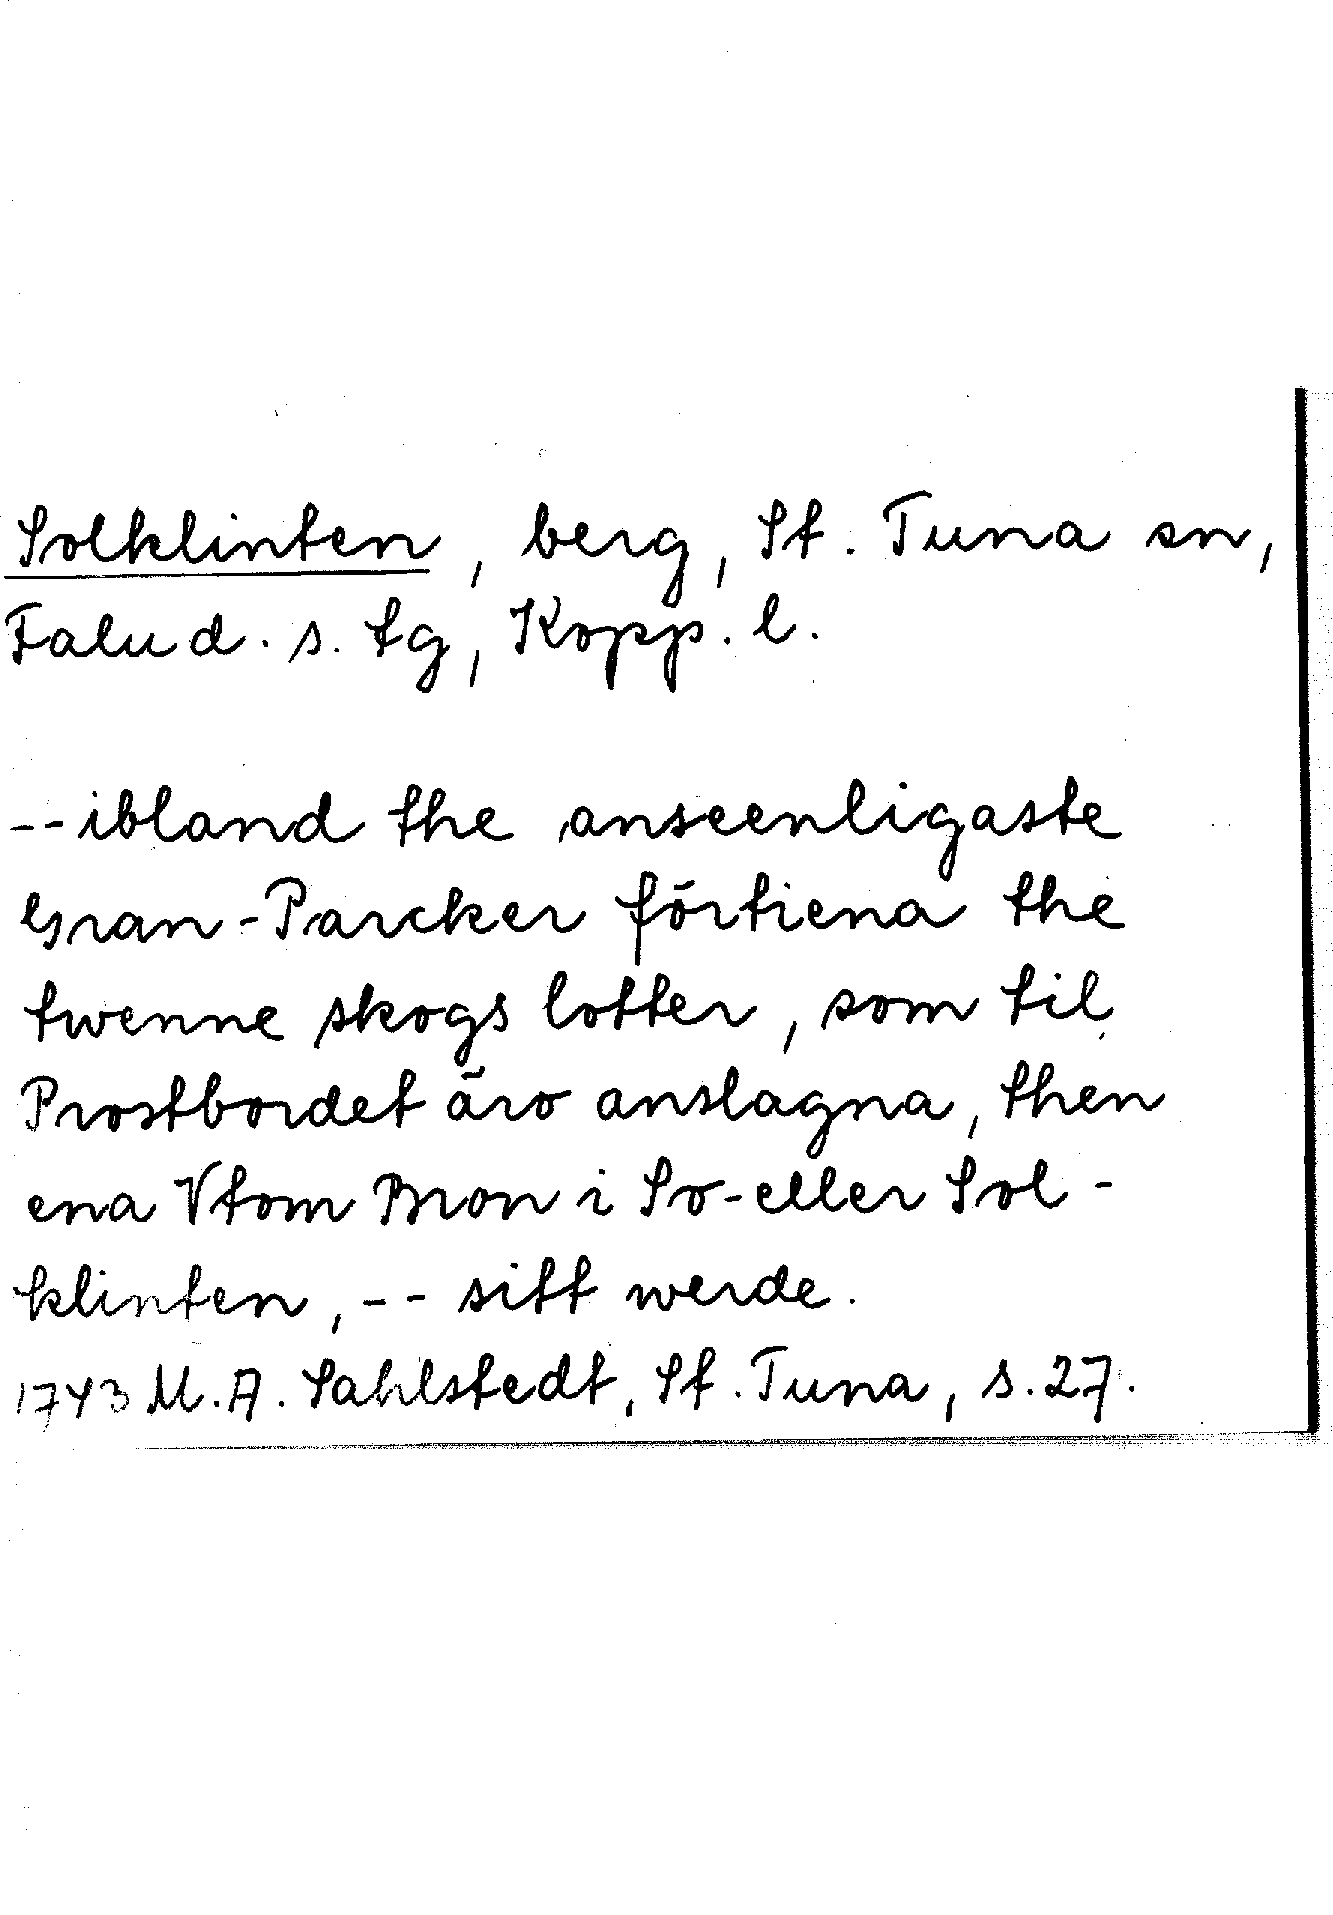 Solklinten, berg, St. Tuna sn,
Falu d. s. tg, Kopp. l.
--ibland the anseenligaste
Gran-Parcker förtiena the
twenne skogs lotter, som til
Prostbordet äro anslagna, then
ena Vtom Mron i So- eller Sol-
klinten, -- sitt werde.
1743 M. A. Sahlstedt, St. Tuna, s. 27.